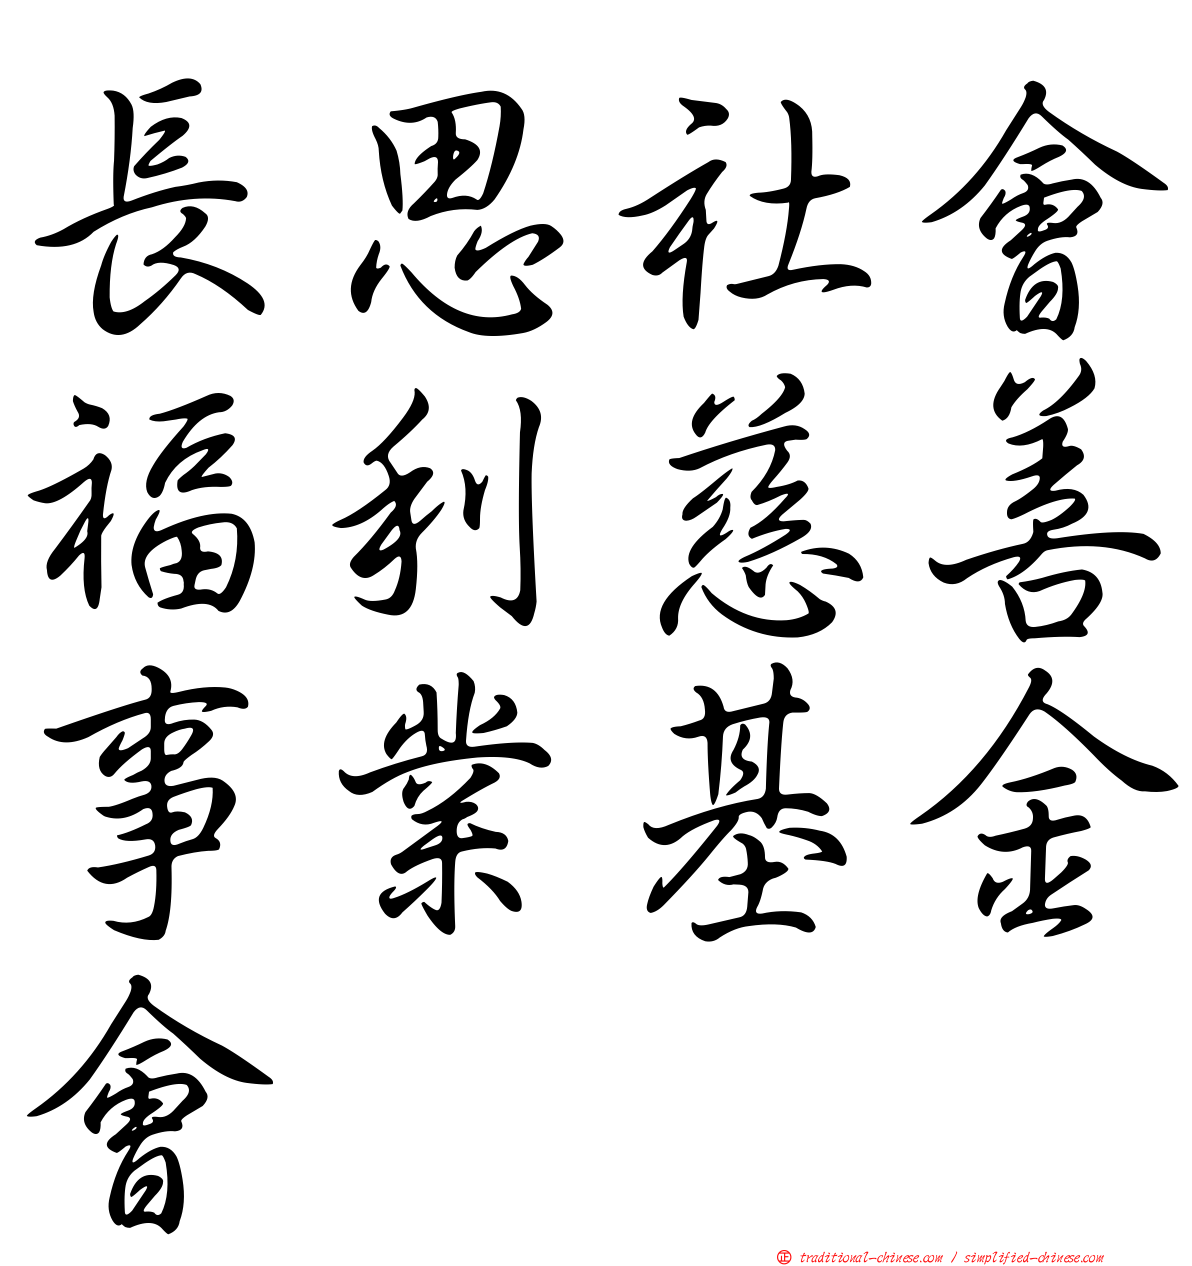 長思社會
福利慈善
事業基金
會
正 traditional-chinese.com / simplified-chinese.com